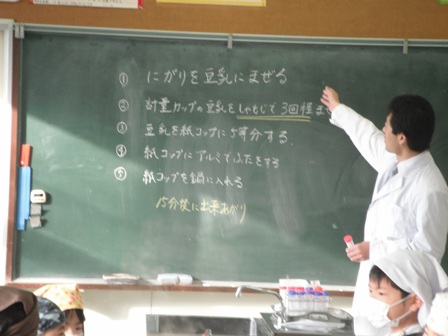 ① にがりを豆乳にまぜる
② 計量カップの豆乳をしゃもじで3回程ま
③ 豆乳を紙コップに5等分する
④ 紙コップにアルミでふたをする
⑤ 紙コップを鍋に入れる
15分後に出来あがり